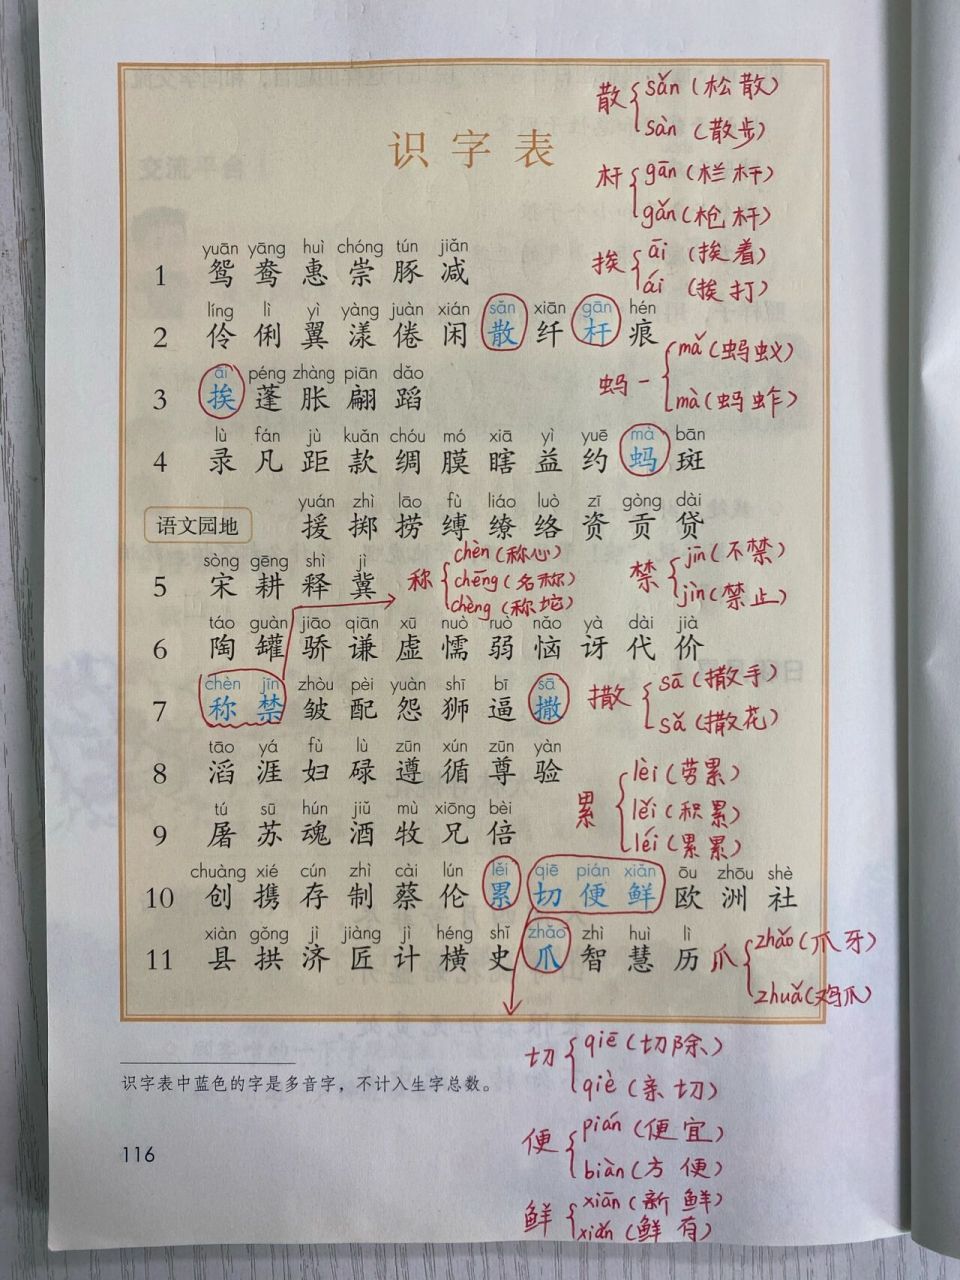 散 sǎn（松散）
sàn（散步）
识字表
杆 gān（栏杆）
gǎn（枪杆）
挨 āi（挨着）
ái（挨打）
yuān yāng huì chóng tún jiǎn
1 鸳 鸯 惠 崇 豚 减
líng lì yì yàng juàn xián sǎn xiān gān hén
2 伶 俐 翼 漾 倦 闲 散 纤 杆 痕
蚂 mǎ（蚂蚁）
mà（蚂蚱）
āi péng zhàng piān dǎo
3 挨 蓬 胀 翩 蹈
lù fán jù kuǎn chóu mó xiā yì yuē mà bān
4 录 凡 距 款 绸 膜 瞎 益 约 蚂 斑
yuán zhì lāo fù liáo luò zī gòng dài
语文园地 援 掷 捞 缚 缭 络 资 贡 贷
sòng gēng shì jì
5 宋 耕 释 冀
称 chèn（称心）
chēng（名称）
chèng（称坨）
禁 jīn（不禁）
jìn（禁止）
táo guàn jiāo qiān xū nuò ruò nǎo yà dài jià
6 陶 罐 骄 谦 虚 懦 弱 恼 讶 代 价
chèn jīn zhòu pèi yuàn shī bī sā
7 称 禁 皱 配 怨 狮 逼 撒
撒 sā（撒手）
sǎ（撒花）
tāo yá fù lù zūn xún zūn yàn
8 滔 涯 妇 碌 遵 循 尊 验
累 lèi（劳累）
lěi（积累）
léi（累累）
tú sū hún jiǔ mù xiōng bèi
9 屠 苏 魂 酒 牧 兄 倍
chuàng xié cún zhì cài lún lěi qiē pián xiān ōu zhōu shè
10 创 携 存 制 蔡 伦 累 切 便 鲜 欧 洲 社
xiàn gǒng jì jiàng jì héng shǐ zhǎo zhì huì lì
11 县 拱 济 匠 计 横 史 爪 智 慧 历
爪 zhǎo（爪牙）
zhuǎ（鸡爪）
切 qiē（切除）
qiè（亲切）
识字表中蓝色的字是多音字，不计入生字总数。
便 pián（便宜）
biàn（方便）
116
鲜 xiān（新鲜）
xiǎn（鲜有）